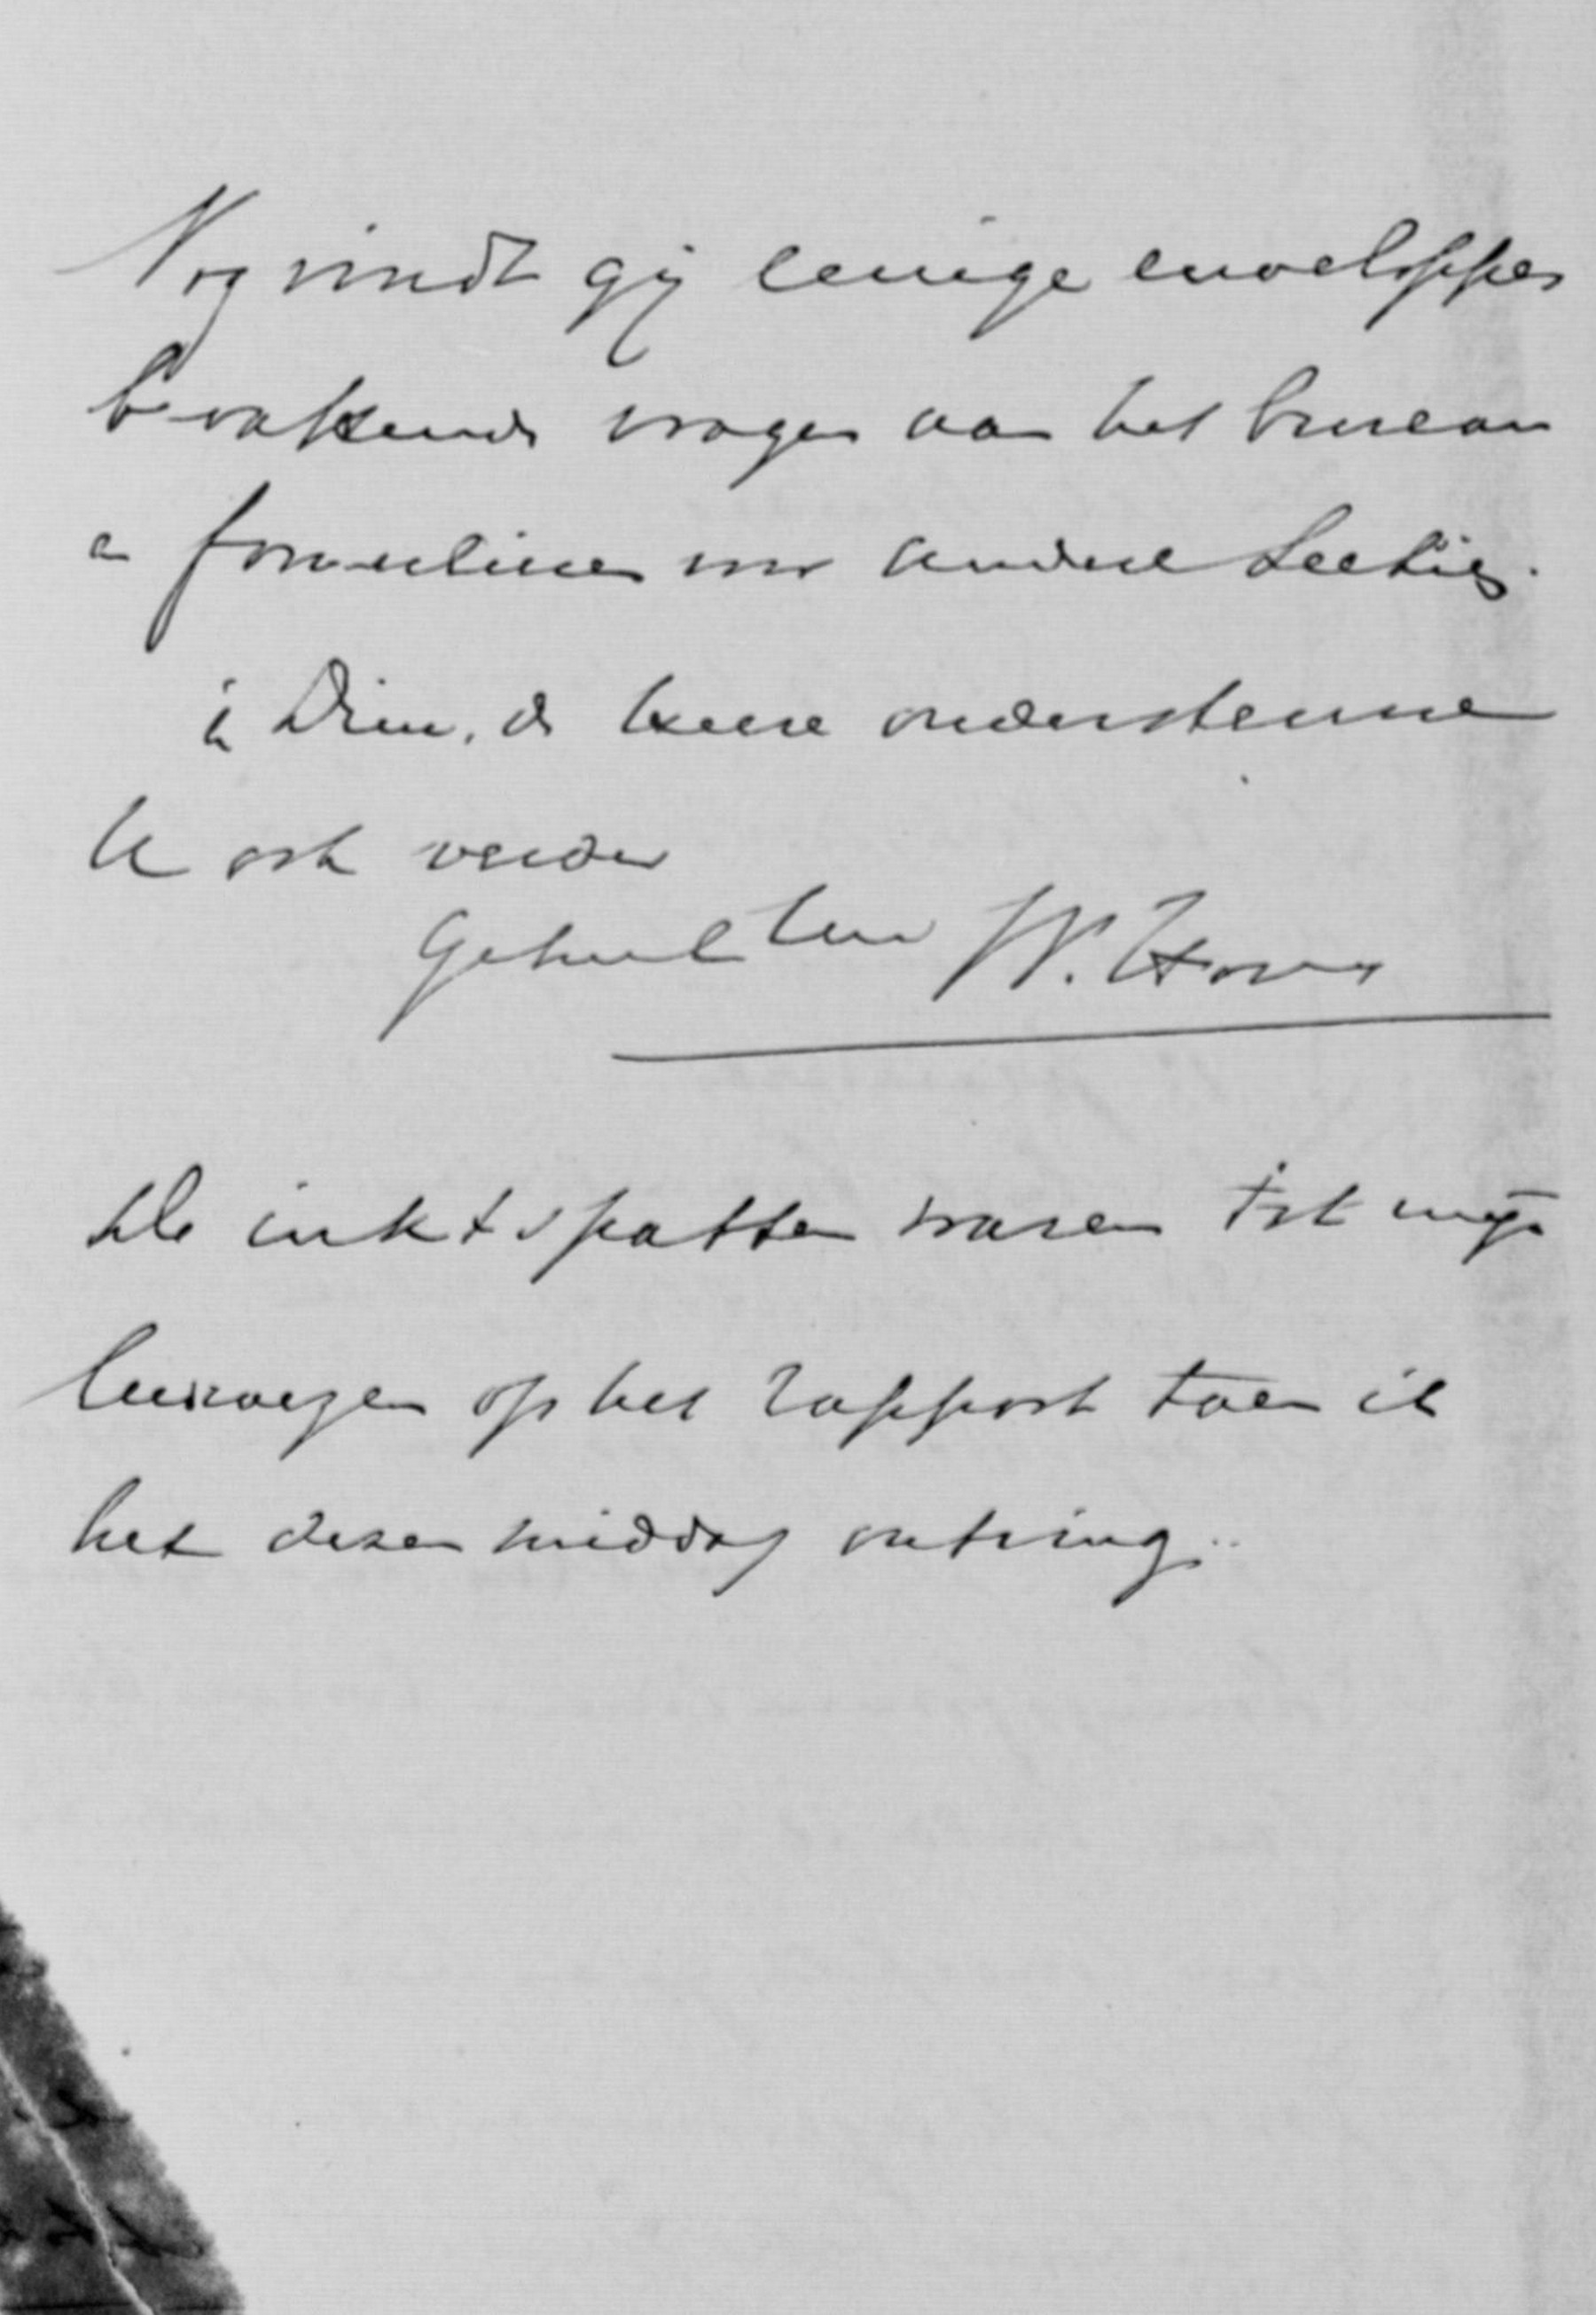 Nog vindt gij eenige enveloppen
bevattende vragen aan het bureau
en formulieren voor andere secties.
de Heere ondersteune
U ook verder
Geheel Uw W. Hovy
De inktspatten waren tot mijn
leedwezen op het rapport toen ik
het dezen middag ontving.